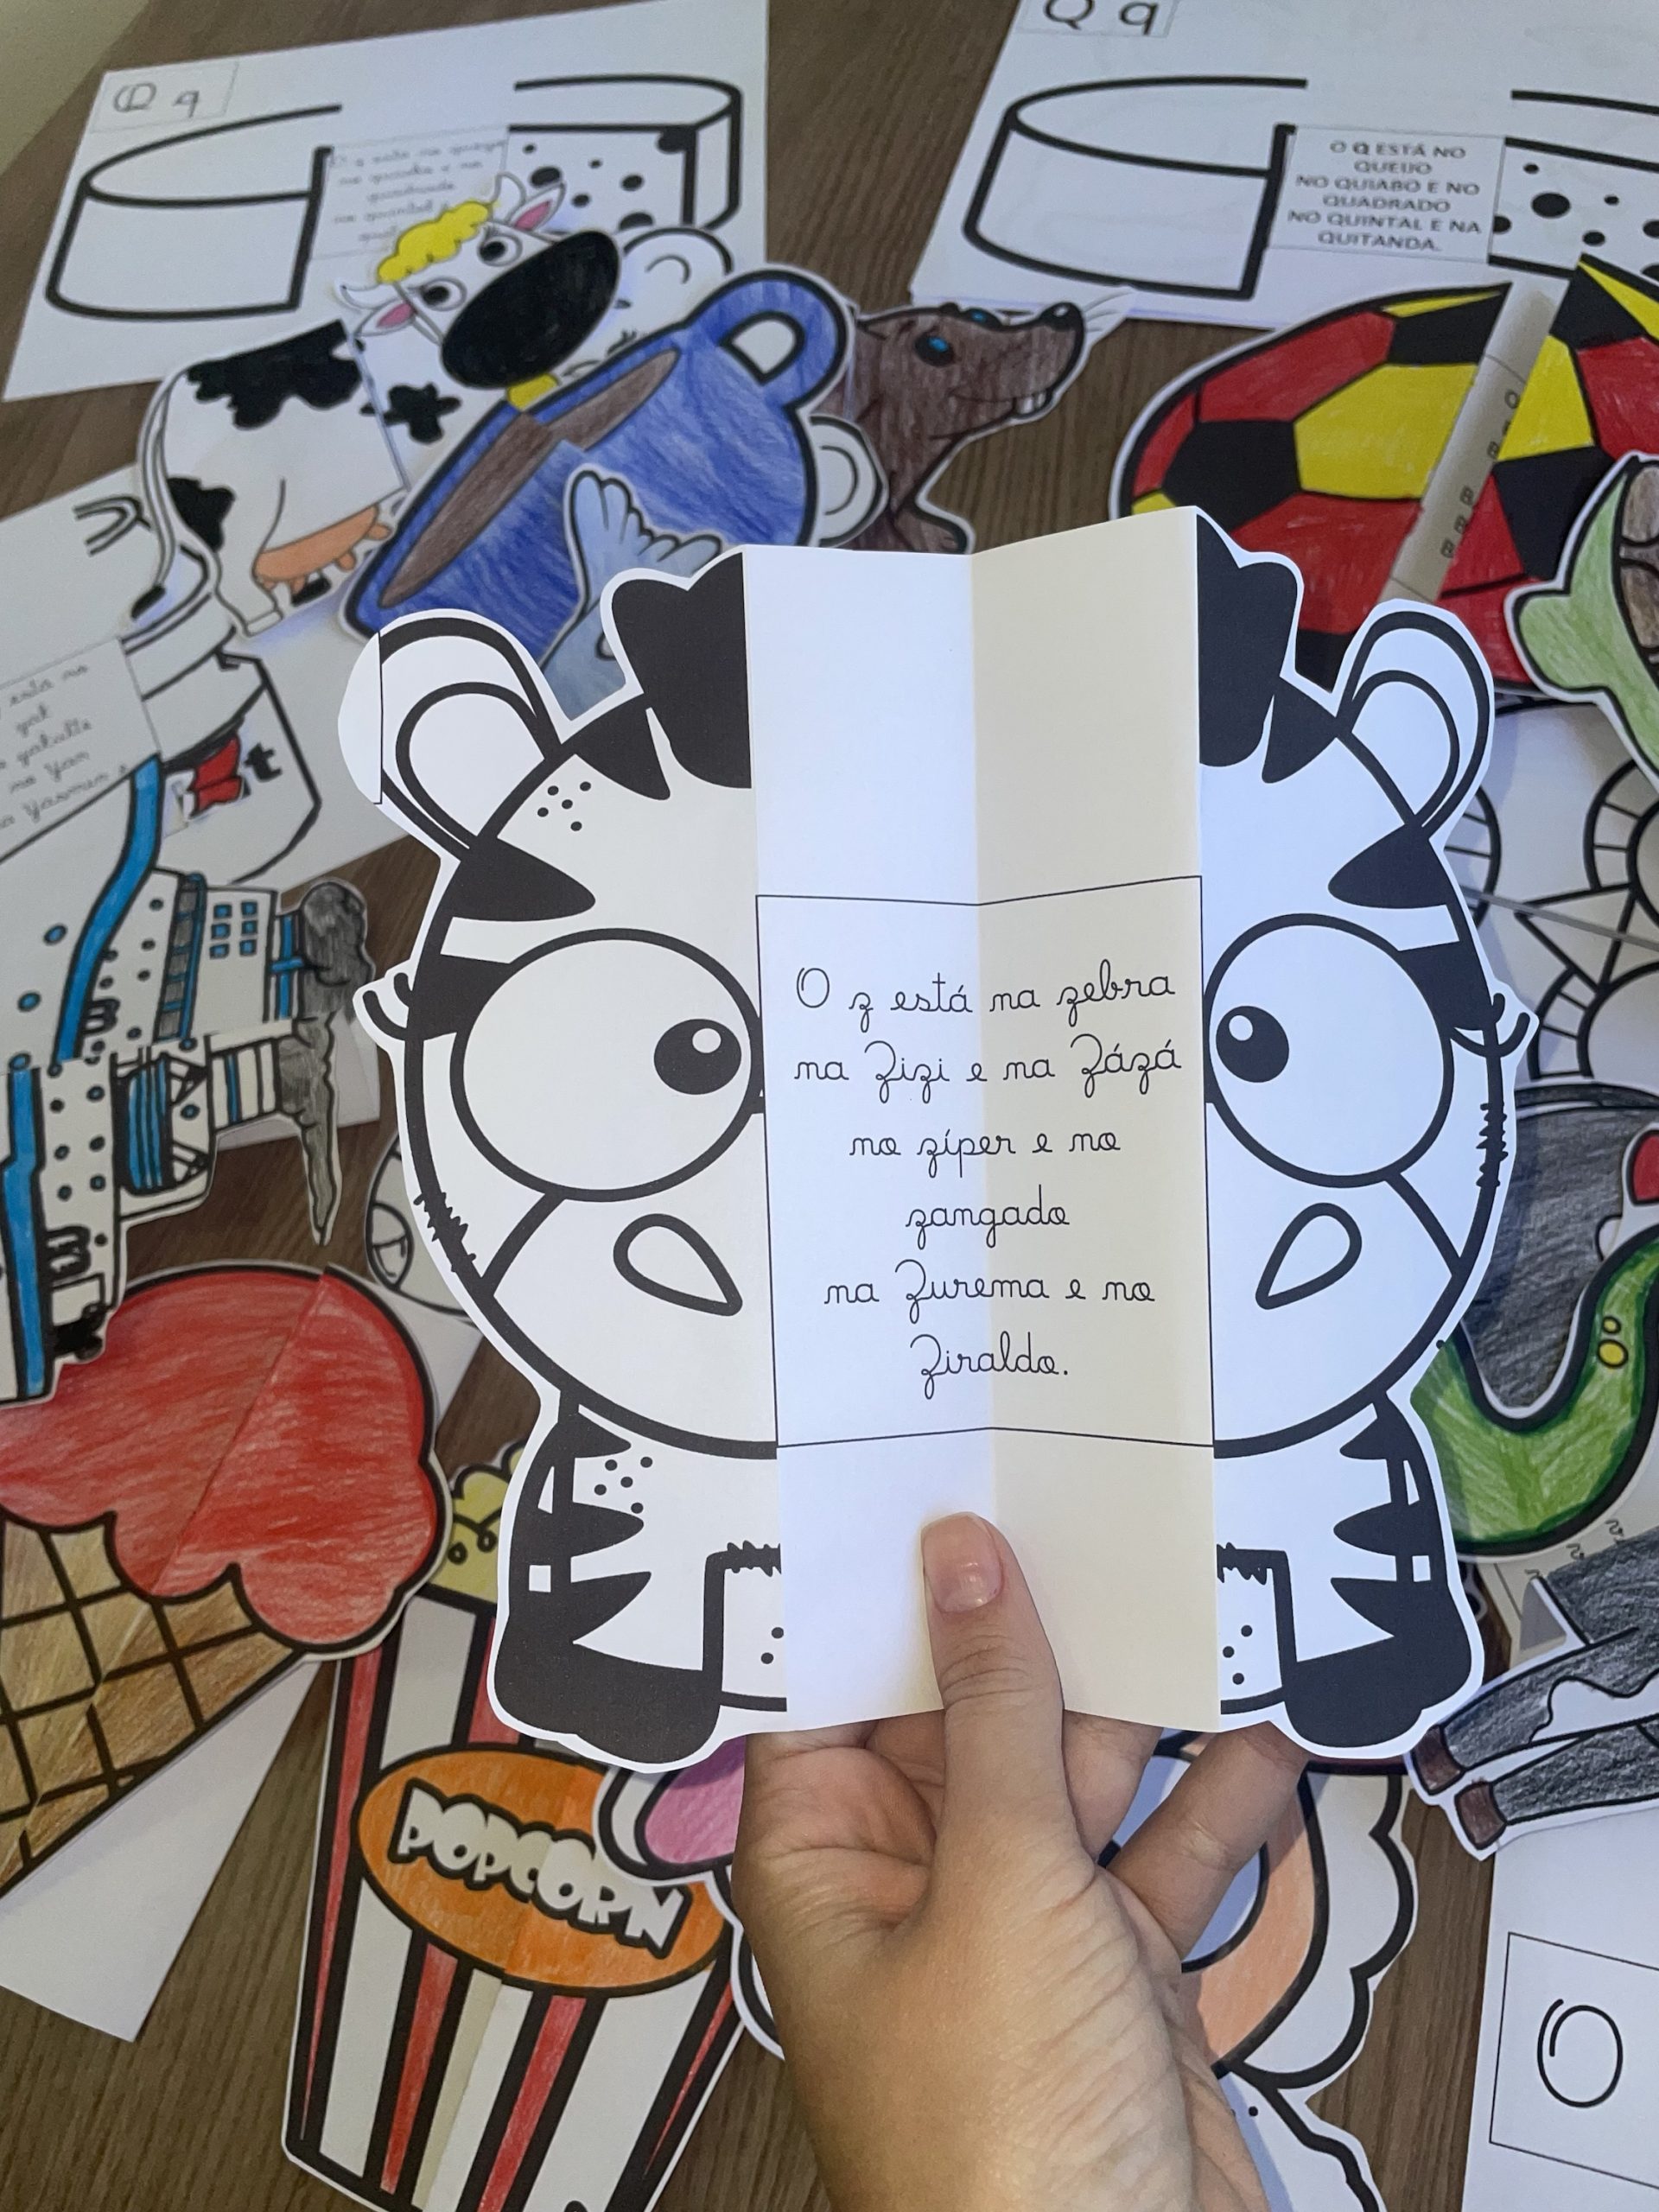 Q q
Q q
O Q ESTÁ NO
QUEIJO
NO QUIABO E NO
QUADRADO
NO QUINTAL E NA
QUITANDA.
O z está na zebra
na Zizi e na Zázá
no zíper e no
zangado
na Zurema e no
Ziraldo.
POPCORN
O